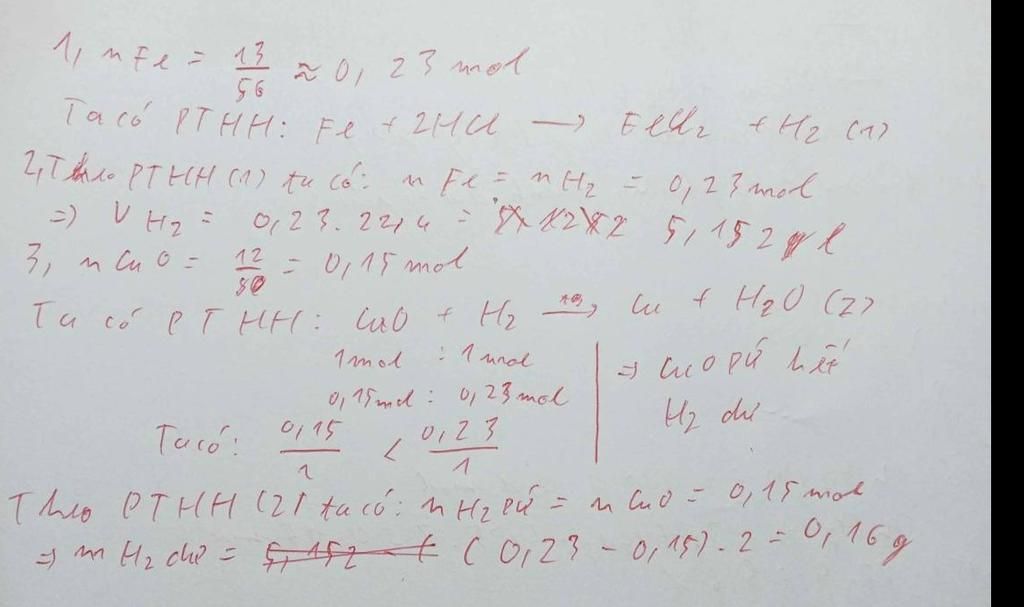 1, nFe = 13/56 ≈ 0,23 mol
Ta có PTHH: Fe + 2HCl → FeCl2 + H2 (1)
2, Theo PTHH (1) ta có: nFe = nH2 = 0,23 mol
=> VH2 = 0,23. 22,4 = 5,152 l
3, nCuO = 12/80 = 0,15 mol
Ta có PTHH: CuO + H2 →(t°) Cu + H2O (2)
1mol : 1mol
0,15mol : 0,23mol
Ta có: 0,15/1 < 0,23/1
=> CuO pứ hết
H2 dư
Theo PTHH (2) ta có: nH2 pứ = nCuO = 0,15 mol
=> mH2 dư = (0,23 - 0,15). 2 = 0,16g